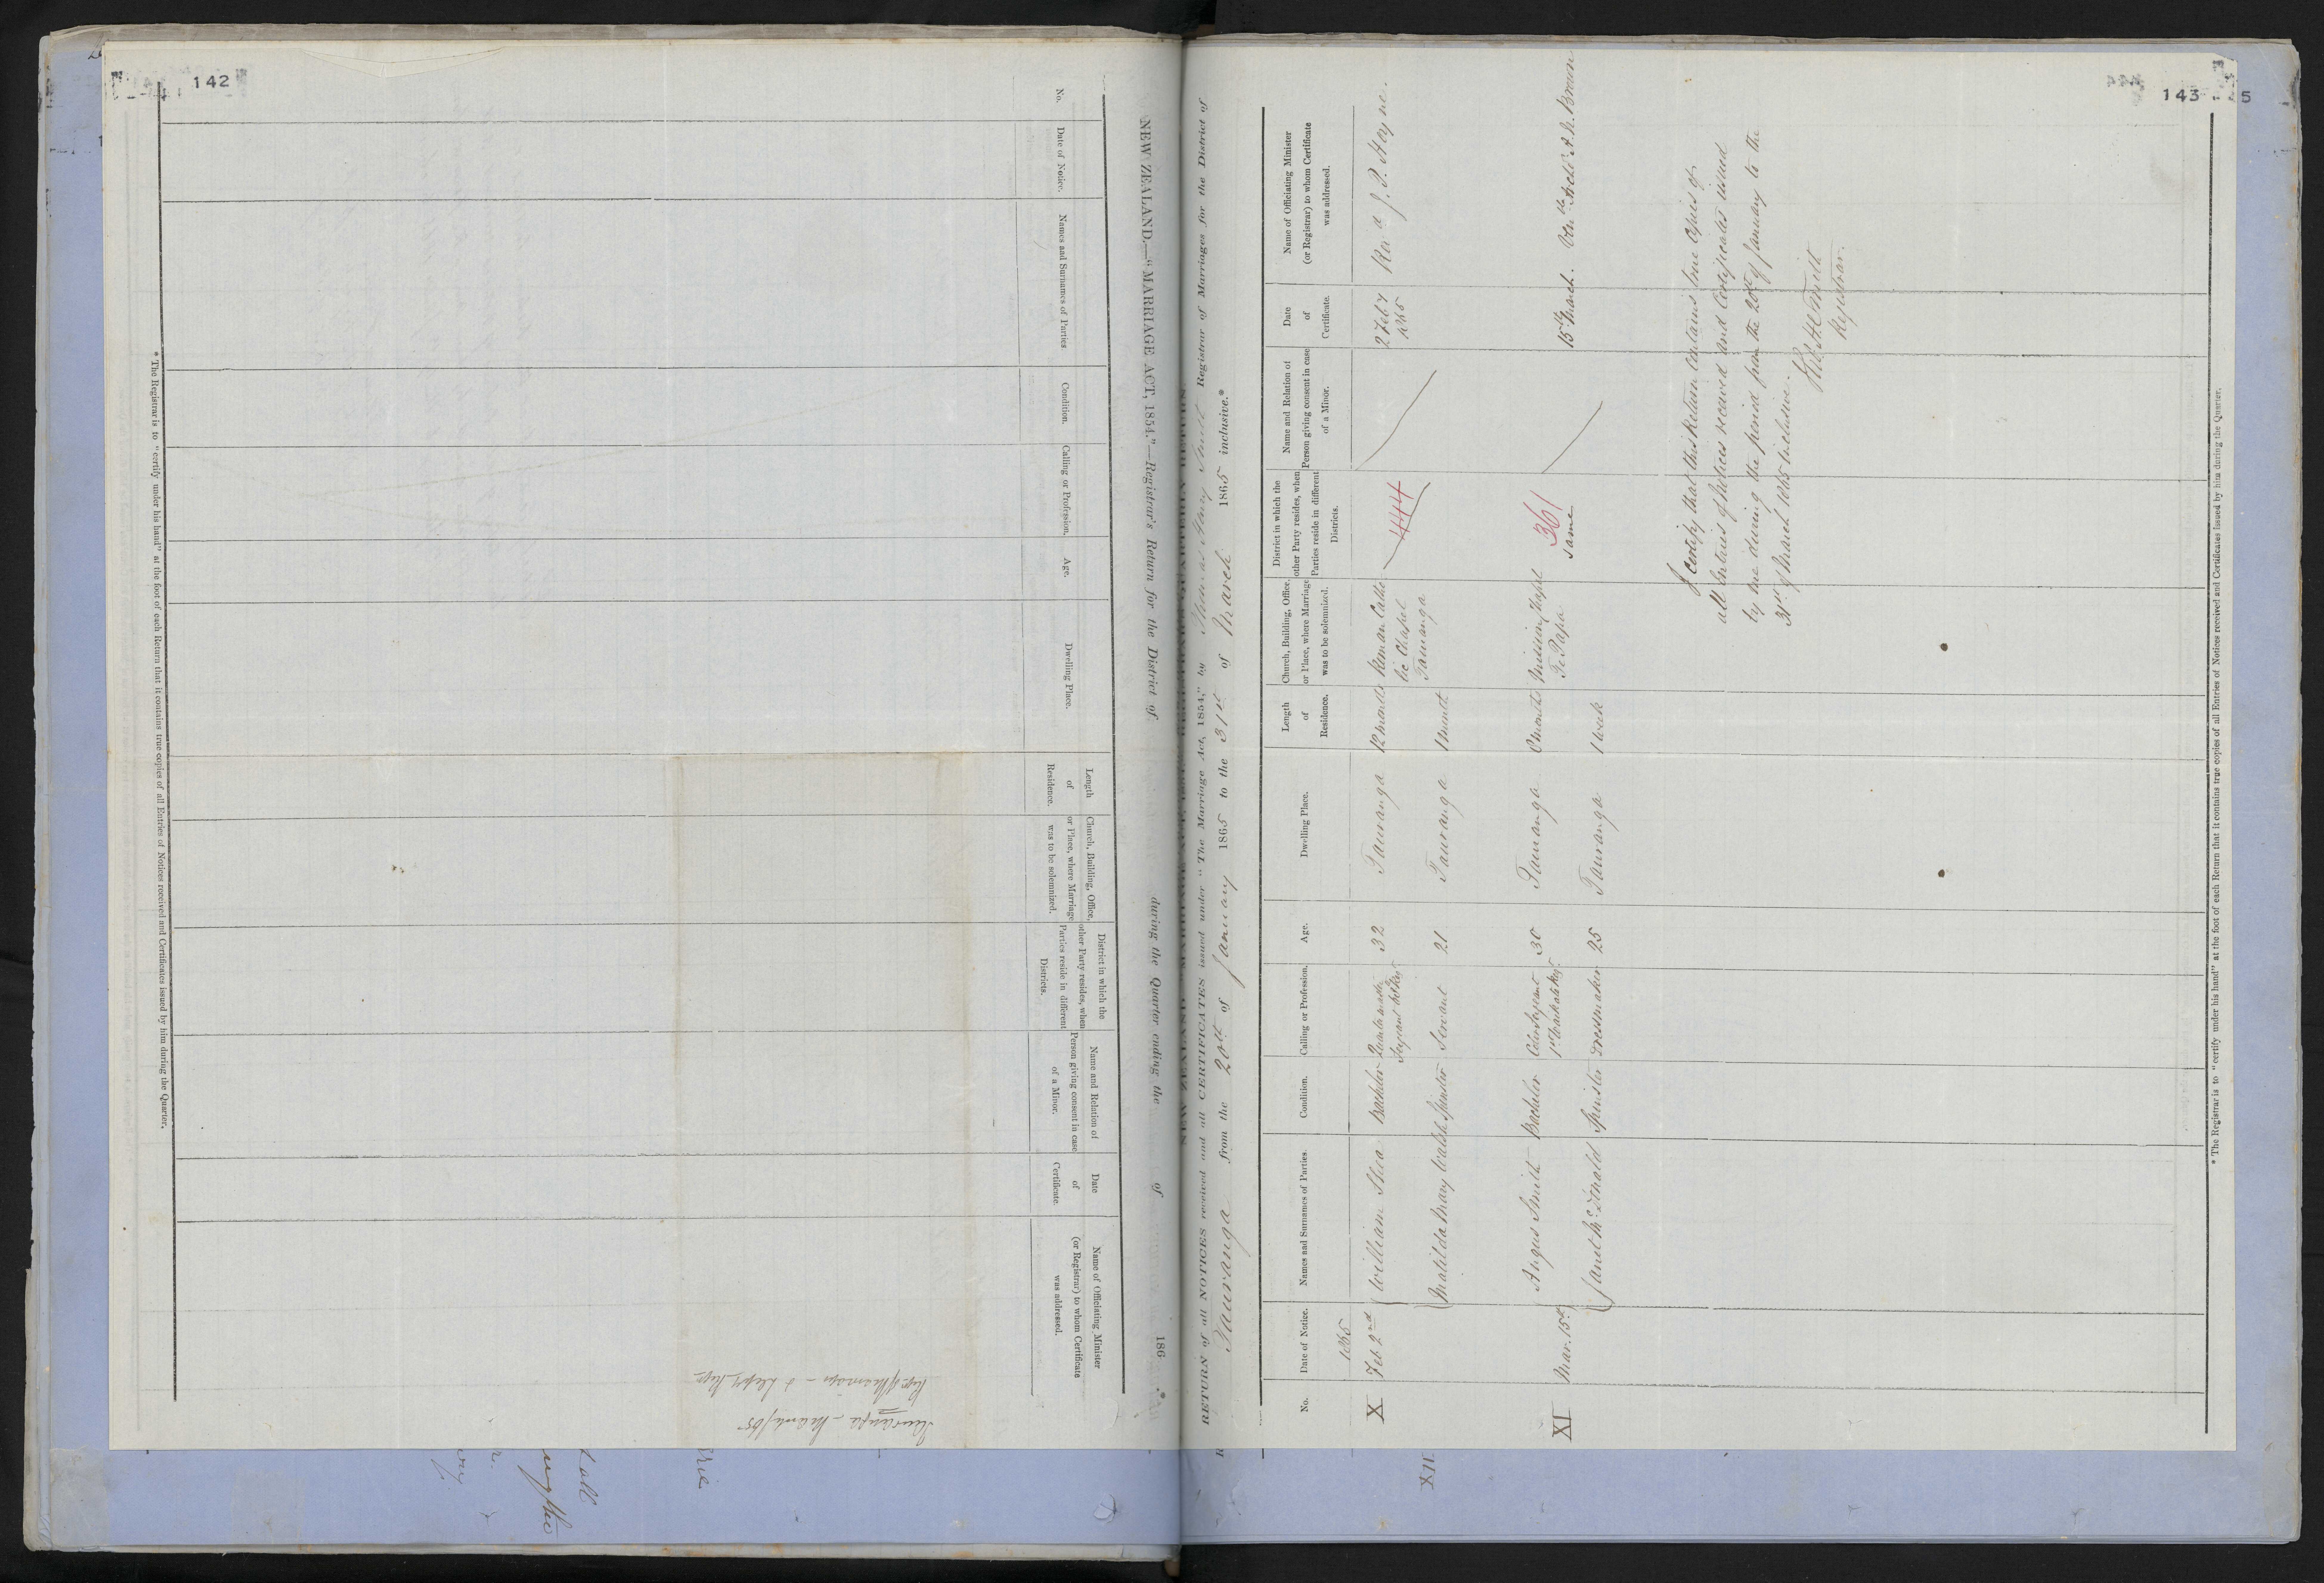 142
NEW ZEALAND.—"MARRIAGE ACT, 1854."—Registrar's Return for the District of during the Quarter ending the of 186 .*
No.
Date of Notice.
Names and Surnames of Parties.
Condition.
Calling or Profession.
Age.
Dwelling Place.
Length of Residence.
Church, Building, Office, or Place, where Marriage was to be solemnized.
District in which the other Party resides, when Parties reside in different Districts.
Name and Relation of Person giving consent in case of a Minor.
Date of Certificate.
Name of Officiating Minister (or Registrar) to whom Certificate was addressed.
* The Registrar is to "certify under his hand" at the foot of each Return that it contains true copies of all Entries of Notices received and Certificates issued by him during the Quarter.
143
5
RETURN of all NOTICES received and all CERTIFICATES issued under "The Marriage Act, 1854," by Thomas Henry Smith Registrar of Marriages for the District of
Tauranga from the 20th of January 1865 to the 31st of March 1865 inclusive.*
No.
Date of Notice.
Names and Surnames of Parties.
Condition.
Calling or Profession.
Age.
Dwelling Place.
Length of Residence.
Church, Building, Office, or Place, where Marriage was to be solemnized.
District in which the other Party resides, when Parties reside in different Districts.
Name and Relation of Person giving consent in case of a Minor.
Date of Certificate.
Name of Officiating Minister (or Registrar) to whom Certificate was addressed.
1865
X Feb 2nd William Shea Bachelor Quartermaster Sergeant 32 Tauranga 12 months Roman Catholic Chapel Tauranga 444 2 Feby 1865 Revd J. P.
Matilda May Walsh Spinster Servant 21 Tauranga 1 month
XI Mar. 15th Angus Smith Bachelor Color Sergeant 1st Waikato Regt 30 Tauranga months Mission Chapel Te Papa 361 same 15th March. Venble Archdn A. N. Brown
Janet McDonald Spinster Dressmaker 25 Tauranga 1 week
I certify that this Return contains true copies of
all Entries of Notices received and Certificates issued
by me during the period from the 20th of January to the
31st of March 1865 inclusive.
Smith
Registrar.
* The Registrar is to "certify under his hand" at the foot of each Return that it contains true copies of all Entries of Notices received and Certificates issued by him during the Quarter.
XII